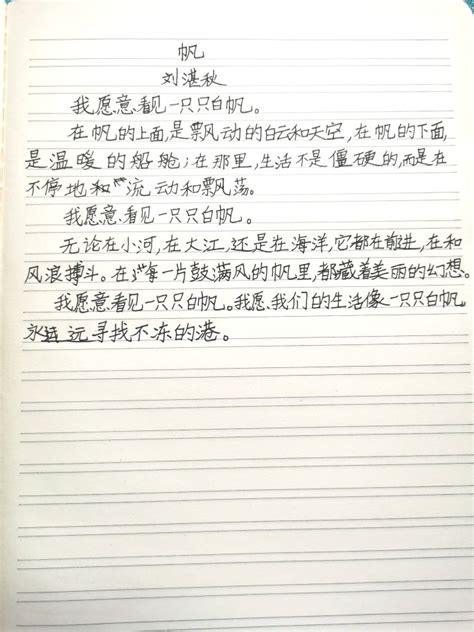 帆
刘湛秋
我愿意看见一只只白帆。
在帆的上面,是飘动的白云和天空,在帆的下面,
是温暖的船舱;在那里,生活不是僵硬的,而是在
不停地和流动和飘荡。
我愿意看见一只只白帆。
无论在小河,在大江,还是在海洋,它都在前进,在和
风浪搏斗。在每一片鼓满风的帆里,都藏着美丽的幻想。
我愿意看见一只只白帆。我愿我们的生活像一只只白帆,
永远远寻找不冻的港。